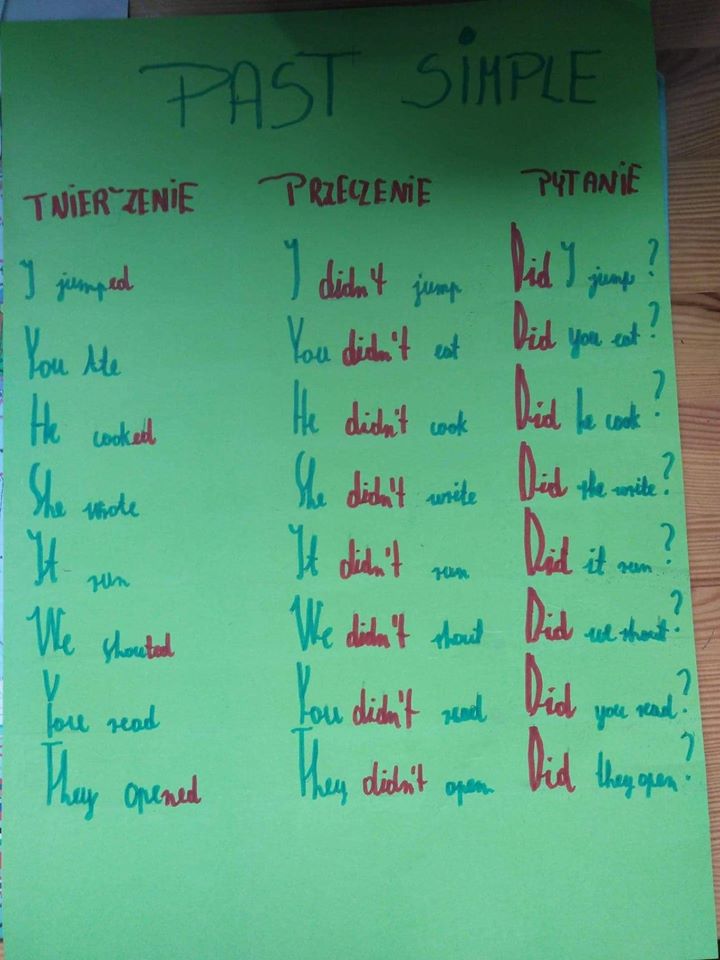 PAST SIMPLE
TWIERDZENIE PRZECZENIE PYTANIE
I jumped I didn't jump Did I jump?
You Ate You didn't eat Did you eat?
He cooked He didn't cook Did he cook?
She wrote She didn't write Did she write?
It run It didn't run Did it run?
We shouted We didn't shout Did we shout?
You read You didn't read Did you read?
They opened They didn't open Did they open?